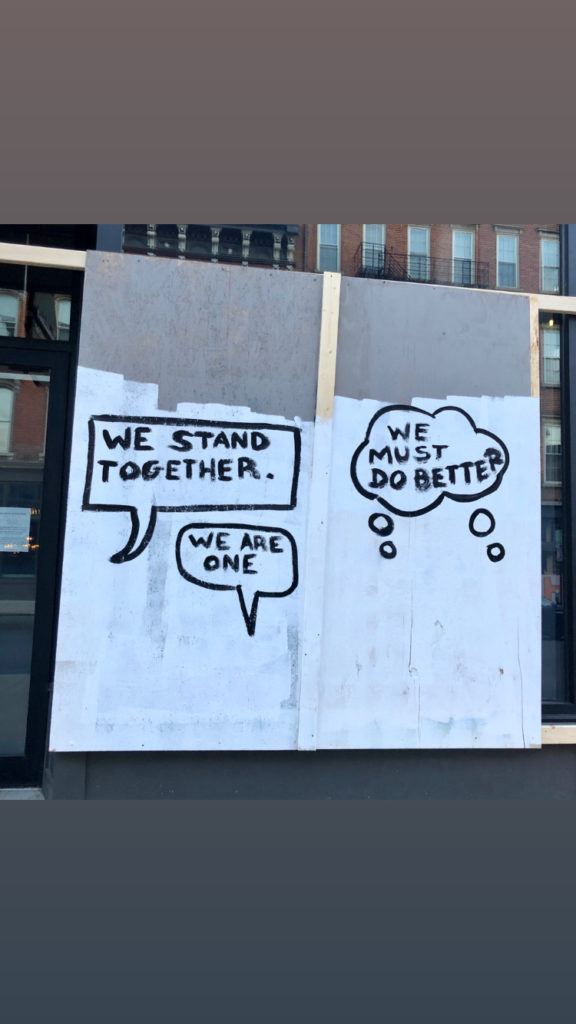 WE STAND
TOGETHER.
WE ARE
ONE
WE
MUST
DO BETTER